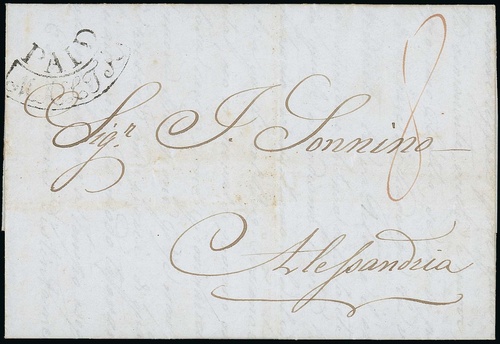 PAID
Sigr. I. Sonnino
8
Alessandria